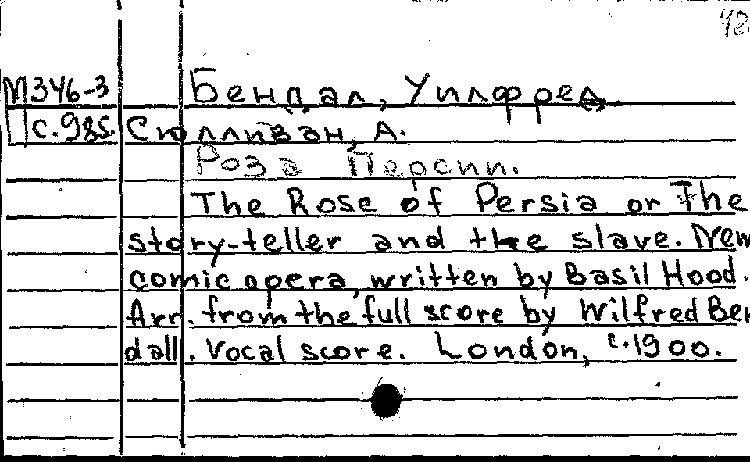 М346-3 Бендал, Уилфред
с.985. Сюлливан, А.
Роза Персии.
The Rose of Persia or The
story-teller and the slave. New
comic opera, written by Basil Hood.
Arr. from the full score by Wilfred Ben
dall. Vocal score. London, c.1900.